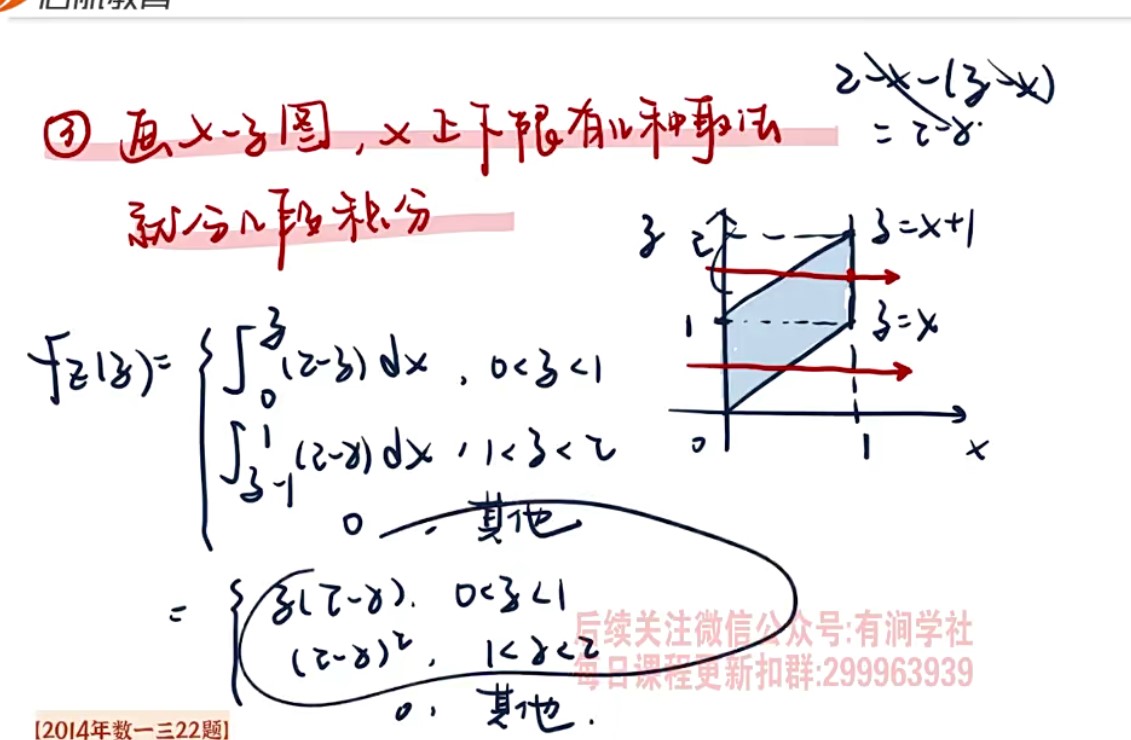 启航教育
③ 画x-z图，x上下限有几种取法
就分几段积分
2-x-(z-x)
=2-z.
z 2 z=x+1
1 z=x
0 1 x
f_Z(z)= { ∫_0^z (2-z)dx , 0<z<1
∫_{z-1}^1 (2-z)dx , 1<z<2
0 , 其他
= { z(2-z). 0<z<1
(2-z)², 1<z<2
0, 其他.
后续关注微信公众号:有涧学社
每日课程更新扣群:299963939
【2014年数一三22题】